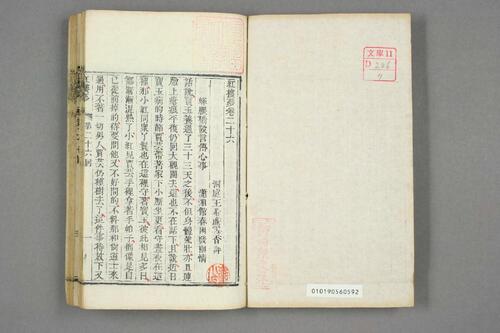 文庫11
D 206
7
紅樓夢卷二十六
洞庭王希廉雪香評
蜂腰橋設言傳心事
瀟湘館春困發幽情
話說寶玉養過了三十三天之後不但身體強壯亦且連
臉上瘡痕平復仍回大觀園去這也不在話下且說近日
寶玉病的時節賈芸帶著家下小廝坐更看守晝夜在這
裡那小紅同眾丫鬟也在這裡守著寶玉彼此相見多日
都漸漸混熟了小紅見賈芸手裡拿著手帕子倒像是自
已從前掉的待要問他又不好問的不料那和尚道士來
過用不著一切男人賈芸仍種樹去了這件事待放下又
第二十六回
010190560592